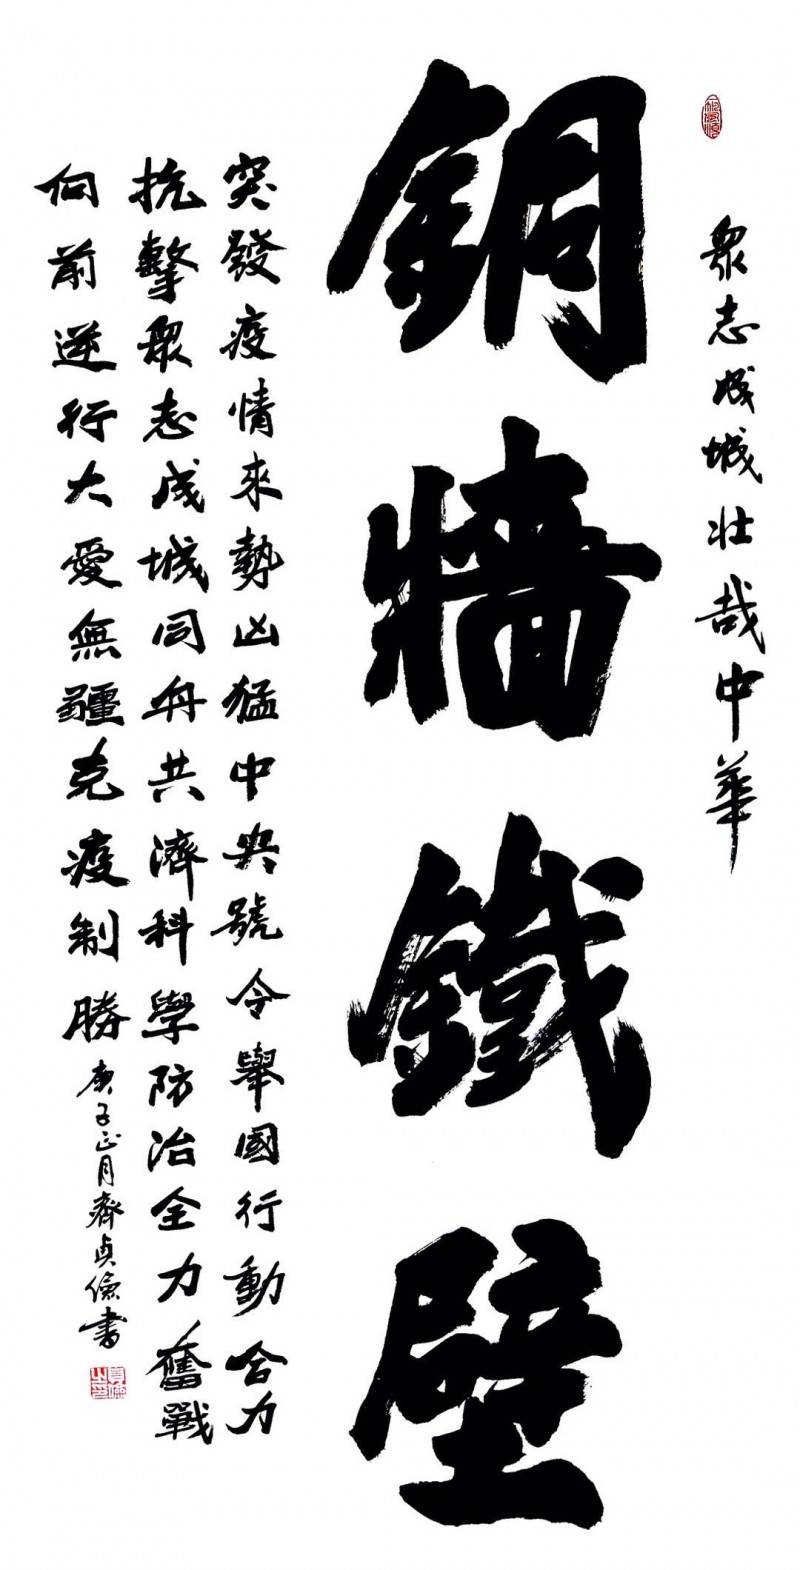 眾志成城壯哉中華
銅牆鐵壁
突發疫情來勢凶猛中央號令舉國行動合力
抗擊眾志成城同舟共濟科學防治全力奮戰
向前逆行大愛無疆克疫制勝
庚子正月齊貞儉書